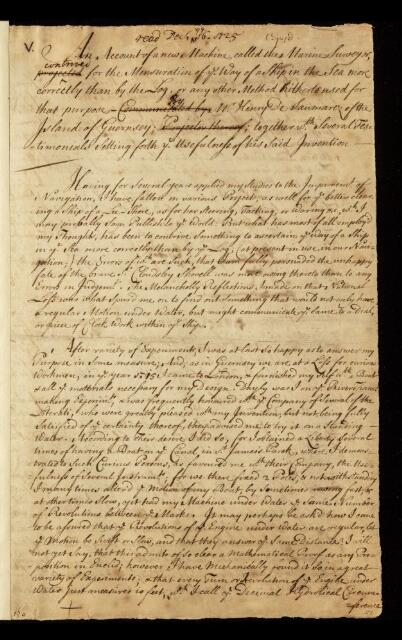 read Dec. 16. 1725
V. An Account of a new Machine, called the Marine Surveyor,
contrived
projected for the Mensuration of ye Way of a Ship in the Sea more
correctly than by the Log, or any other Method hitherto used for
that purpose Communicated by By Mr Henry De Saumarez of the
Island of Guernsey; Projector thereof; together wth Several Tes-
timonials Setting forth ye Usefulness of this Said Invention
Having for Several years applyed my Studies to the Improvemt of
Navigation, I have fallen on various Projects, as well for ye better clear-
ing a Ship of a Lee-Shore, as for her Steering, Tacking, or Waring &c, wch I
may probably Soon Publish to ye World. But what has most of all employ'd
my Thoughts, has been to contrive Something to ascertain ye way of a Ship
in ye Sea more correctly than by ye Log, (at present in use in our Navi-
gation;) the Errors of wch are Such, that I am fully perswaded the unhappy
fate of the brave Sr Cloudsly Shovell was more owing thereto than to any
Error in Judgmt. The Melancholly Reflections, I made on that National
Loss was what Spurr'd me on to find out Something that would not only have
a regular Motion under Water, but might communicate ye Same to a Dial,
or piece of Clock Work within ye Ship.
After variety of Experiments, I was at last So happy as to answer my
Purpose in Some measure; And, as in Guernsey we are at a Loss for curious
Workmen, in ye year 1715 I came to London, & furnished my Self wth a Boat
& all ye materials necessary for my Design. Dayly was I on ye River Thames
making Experimts, & was frequently honoured wth ye Company of Several of the
Literati, who were greatly pleased wth my Invention, but not being fully
Satisfied of ye certainty thereof, they advised me to try it on a Standing
Water. According to their desire I did So, for I obtained a Liberty Several
times of having a Boat on ye Canal, in St James's Park, where I demon-
strated to Such Curious Persons, as favoured me wth their Company, the Use-
fulness of Several Instrumts; for we there fixed 2 Poles, & notwithstanding
I many times altered ye Motion of my Boat, by Sometimes rowing fast, &
at other times Slow, yet had my Machine under Water ye Same Number
of Revolutions between ye Marks. It may perhaps be asked how I come
to be assured that ye Revolutions of ye Engine under Water are regular, let
ye Motion be Swift or Slow, and that they answer ye Same Distance? I will
not yet Say, that this admits of So clear a Mathematical Proof as any Pro-
position in Euclid; however I have Mechanically found it So in a great
variety of Experiments; & that every Turn or Revolution of ye Engine under
Water Just measures 10 feet, wch I call ye Decimal Hydrolical Circum-
ference